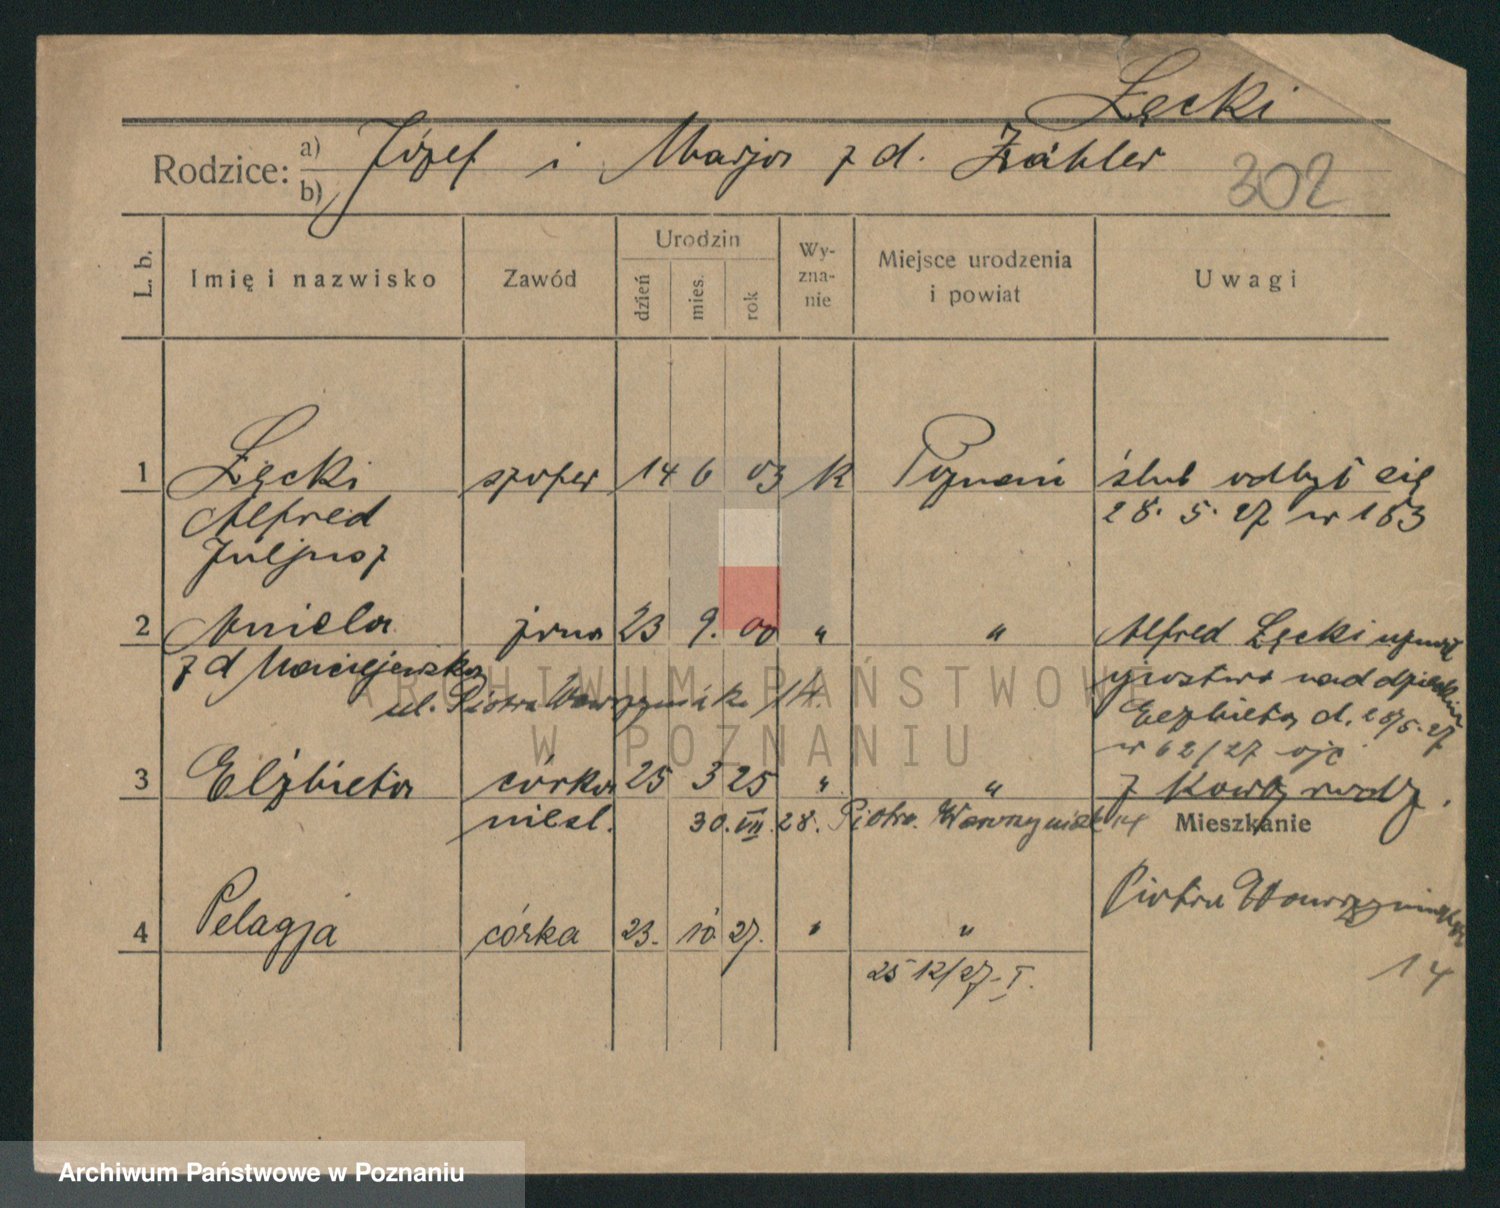 Łęcki
Rodzice: a) b) Józef i Marja z d. Zähler
302
L. b.
Imię i nazwisko
Zawód
Urodzin
dzień
mies.
rok
Wy-
zna-
nie
Miejsce urodzenia
i powiat
Uwagi
1 Łęcki szofer 14 6 03 k Poznań ślub odbył się
Alfred 28. 5. 27 w 183
Juljusz
2 Aniela żona 23 9. 00 " " Alfred Łęcki uznał
z d Maciejewska ojcostwo nad dzieckiem
ul. Piotra Wawrzyniaka 14. Elżbieta d. 28/5.27
w 62/27
3 Elżbieta córka 25 3 25 " "
nieśl. 30. VIII. 28. Piotra Wawrzyniaka 14 Mieszkanie
Piotra Wawrzyniaka
4 Pelagja córka 23. 10 27. " "
14
25 12/27 - I.
ARCHIWUM PAŃSTWOWE
W POZNANIU
Archiwum Państwowe w Poznaniu